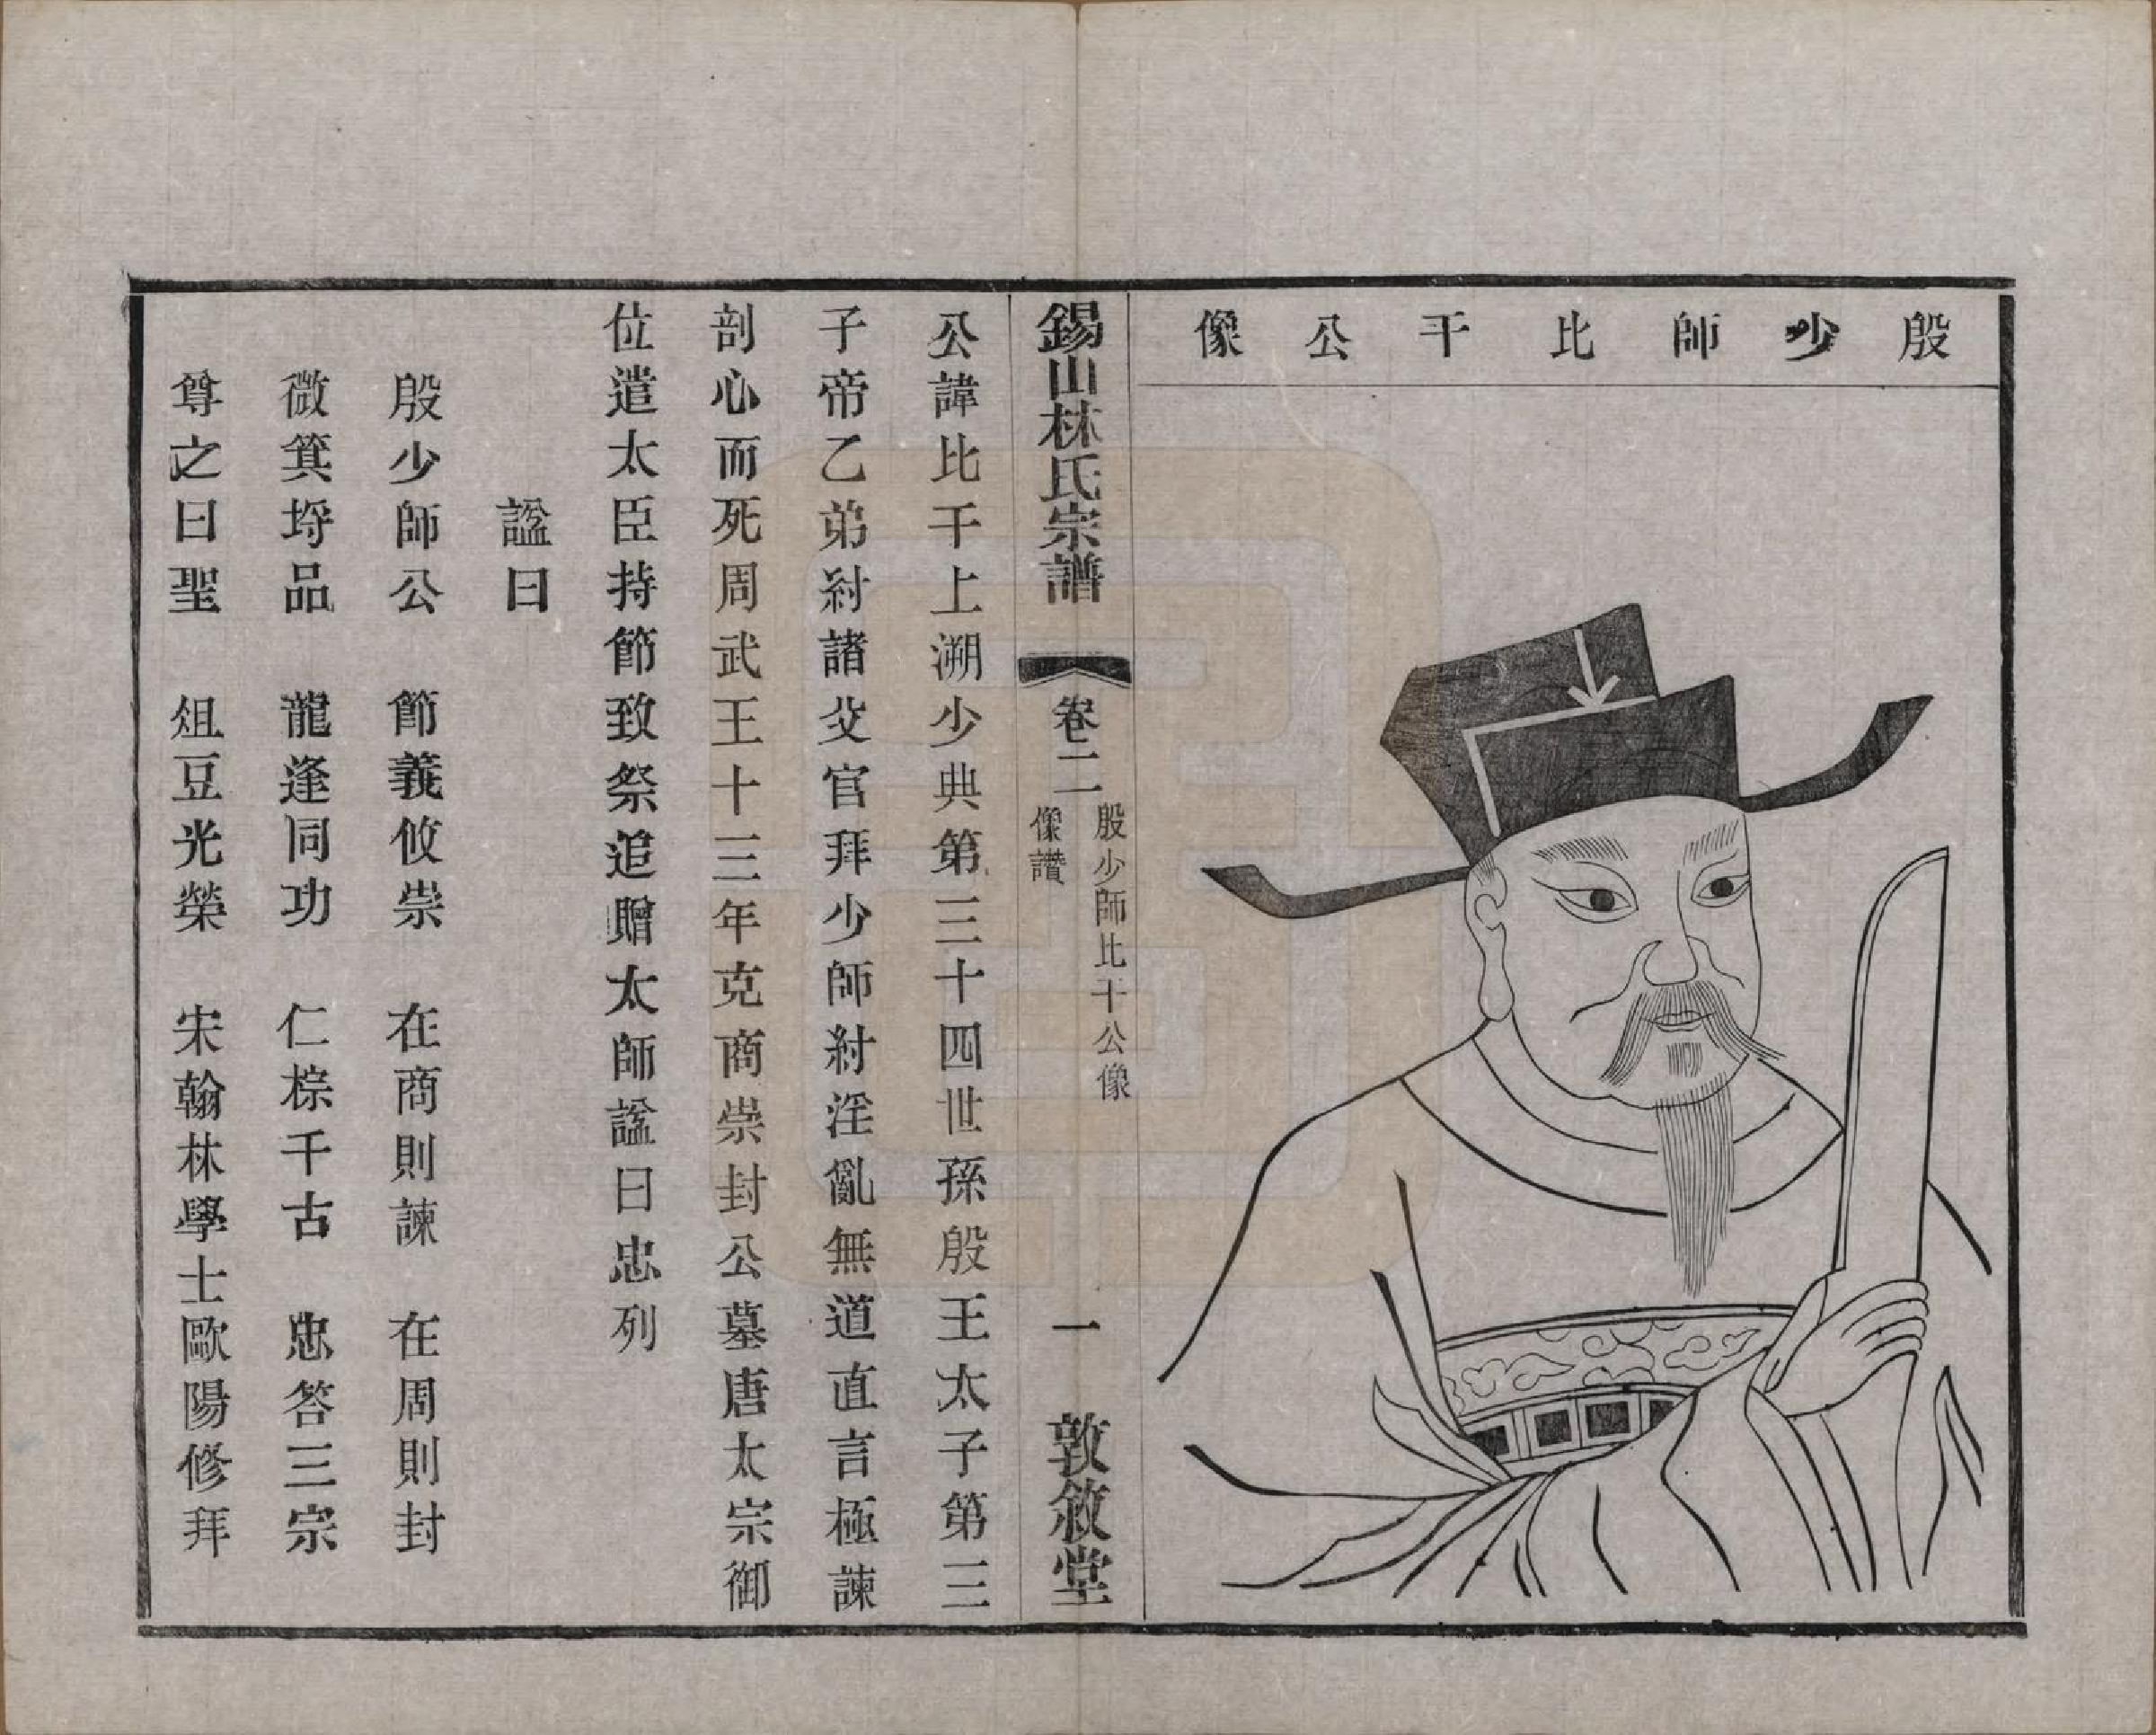 殷少師比干公像
錫山林氏宗譜
卷二
殷少師比干公像
像讚
一
敦敘堂
公諱比干上溯少典第三十四世孫殷王太子第三
子帝乙弟紂諸父官拜少師紂淫亂無道直言極諫
剖心而死周武王十三年克商崇封公墓唐太宗御
位遣太臣持節致祭追贈太師諡曰忠列
諡曰
殷少師公 節義攸崇 在商則諫 在周則封
微箕埒品 龍逢同功 仁棕千古 忠答三宗
尊之曰聖 俎豆光榮 宋翰林學士歐陽修拜